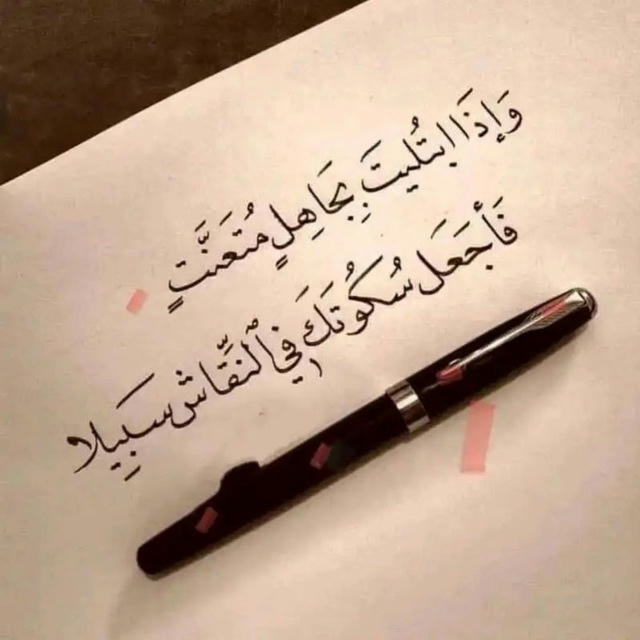 وَإِذَا ابتُليتَ بِجَاهِلٍ مُتَعَنَّتٍ
فَأجعَل سُكُوتَكَ في ٱلنقَّاش سَبِيلا